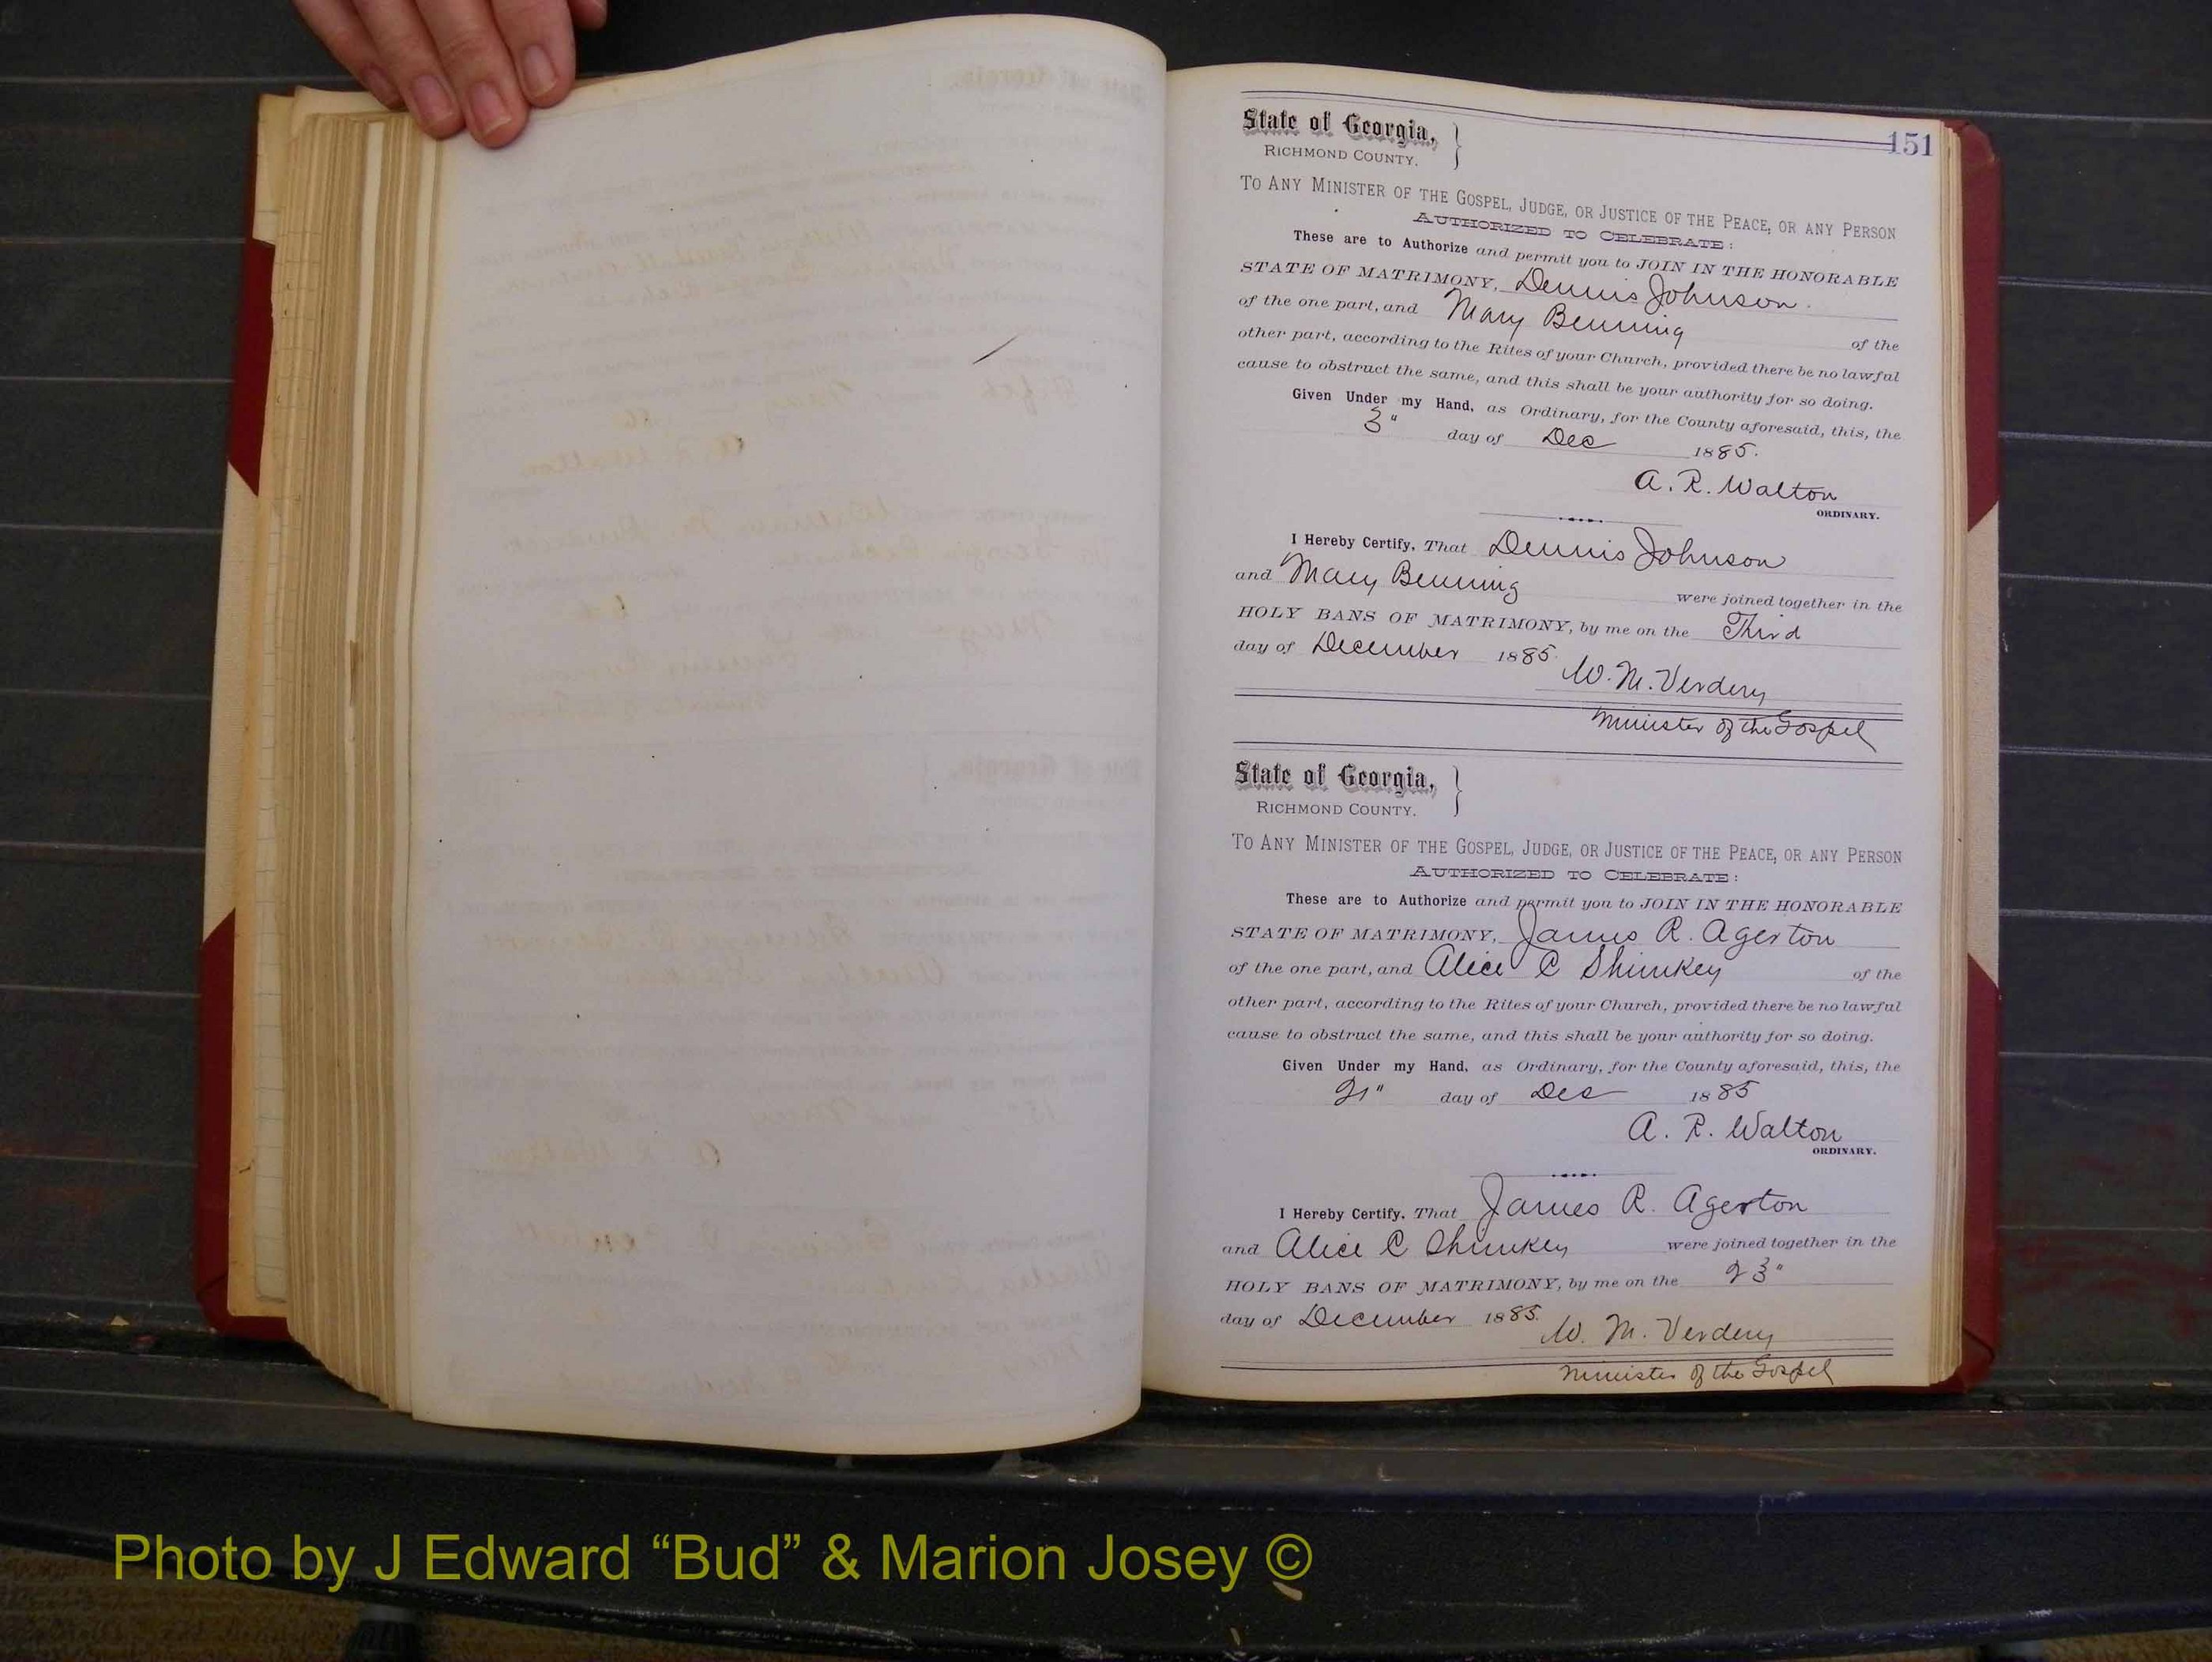 151
State of Georgia, }
RICHMOND COUNTY.
TO ANY MINISTER OF THE GOSPEL, JUDGE, OR JUSTICE OF THE PEACE, OR ANY PERSON
AUTHORIZED TO CELEBRATE:
These are to Authorize and permit you to JOIN IN THE HONORABLE
STATE OF MATRIMONY, Dennis Johnson.
of the one part, and Mary Benning of the
other part, according to the Rites of your Church, provided there be no lawful
cause to obstruct the same, and this shall be your authority for so doing.
Given Under my Hand, as Ordinary, for the County aforesaid, this, the
3" day of Dec 1885.
A. R. Walton
ORDINARY.
I Hereby Certify, That Dennis Johnson
and Mary Benning were joined together in the
HOLY BANS OF MATRIMONY, by me on the Third
day of December 1885.
W. M. Verdery
Minister of the Gospel
State of Georgia, }
RICHMOND COUNTY.
TO ANY MINISTER OF THE GOSPEL, JUDGE, OR JUSTICE OF THE PEACE, OR ANY PERSON
AUTHORIZED TO CELEBRATE:
These are to Authorize and permit you to JOIN IN THE HONORABLE
STATE OF MATRIMONY, James R. Agerton
of the one part, and Alice C Shinkey of the
other part, according to the Rites of your Church, provided there be no lawful
cause to obstruct the same, and this shall be your authority for so doing.
Given Under my Hand, as Ordinary, for the County aforesaid, this, the
21" day of Dec 1885
A. R. Walton
ORDINARY.
I Hereby Certify, That James R. Agerton
and Alice C Shinkey were joined together in the
HOLY BANS OF MATRIMONY, by me on the 23"
day of December 1885.
W. M. Verdery
Minister of the Gospel
Photo by J Edward “Bud” & Marion Josey ©